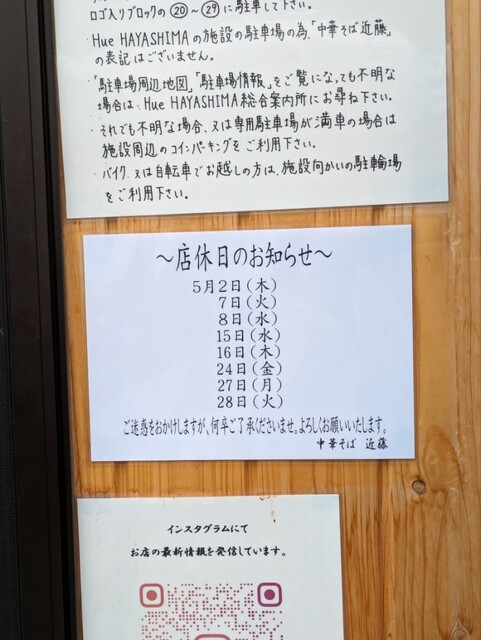 ロゴ入りブロックの⑳～㉙に駐車して下さい。
・Hue HAYASHIMAの施設の駐車場の為、「中華そば近藤」
の表記はございません。
・「駐車場周辺地図」「駐車場情報」をご覧になっても不明な
場合は、Hue HAYASHIMA総合案内所にお尋ね下さい。
・それでも不明な場合、又は専用駐車場が満車の場合は
施設周辺のコインパーキングをご利用下さい。
・バイク、又は自転車でお越しの方は、施設向かいの駐輪場
をご利用下さい。
～店休日のお知らせ～
5月2日(木)
7日(火)
8日(水)
15日(水)
16日(木)
24日(金)
27日(月)
28日(火)
ご迷惑をおかけしますが、何卒ご了承くださいませ。よろしくお願いいたします。
中華そば 近藤
インスタグラムにて
お店の最新情報を発信しています。